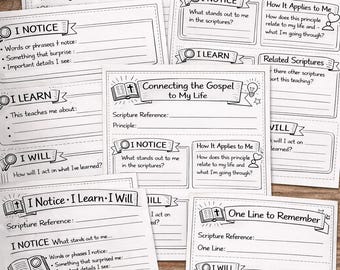 I NOTICE
• Words or phrases I notice:
• Something that surprise
• Important details I see:
I LEARN
• This teaches me about:
I WILL
How will I act on what I've learned?
I NOTICE
What stands out to me
in the scriptures?
How It Applies to Me
How does this principle
relate to my life and
what I'm going through?
I LEARN
Related Scriptures
there other scriptures
port this teaching?
WILL
act on
Connecting the Gospel
to My Life
Scripture Reference:
Principle:
I NOTICE
What stands out to me
in the scriptures?
How It Applies to Me
How does this principle
relate to my life and
what I'm going through?
I Notice • I Learn • I Will
Scripture Reference:
I NOTICE What stands out to me..
• Words or phrases I notice:
• Something that surprised me:
• Important details I see:
act on
One Line to Remember
Scripture Reference:
One Line:
I WILL